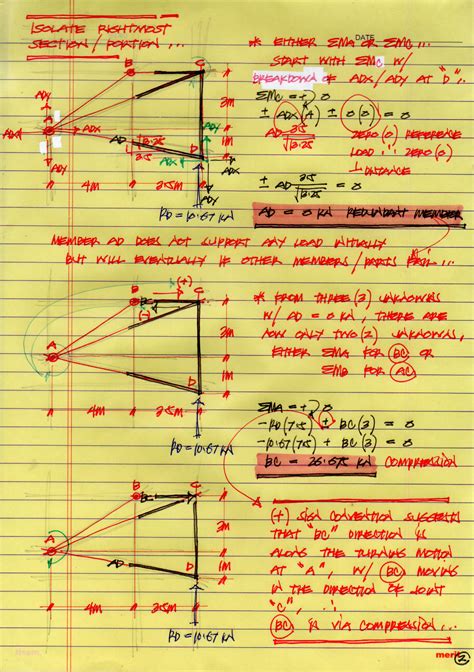 ISOLATE RIGHTMOST
SECTION / PORTION ...
DATE
* EITHER ΣMA OR ΣMC...
START WITH ΣMC W/
BREAKDOWN OF ADX/ADY AT "D"...
ΣMC = + 0
± ADX(3) ± 0(0) = 0
± AD 2.5/√13.25 (3) = 0
ZERO(0) REFERENCE
LOAD ... ZERO(0)
⊥ DISTANCE
± AD 2.5/√13.25 = 0
AD = 0 KN REDUNDANT MEMBER
B
C
A
D
ADY
ADX
ADY
ADX
ADY
AD
2.5
√13.25
3M
4M
2.5M
RD = 10.67 KN
MEMBER AD DOES NOT SUPPORT ANY LOAD INITIALLY
BUT WILL EVENTUALLY IF OTHER MEMBERS/PARTS FAIL...
B
BC
(+)
C
(-)
A
D
4M
2.5M
RD = 10.67 KN
* FROM THREE(3) UNKNOWNS
W/ AD = 0 KN, THERE ARE
NOW ONLY TWO(2) UNKNOWNS,
EITHER ΣMA FOR BC OR
ΣMD FOR AC
ΣMA = + 0
-RD(7.5) + BC(3) = 0
-10.67(7.5) + BC(3) = 0
BC = 26.675 KN COMPRESSION
B
BC
C
A
AD
D
3M
4M
2.5M
RD = 10.67 KN
(+) SIGN CONVENTION SUGGESTS
THAT "BC" DIRECTION IS
ALONG THE TURNING MOTION
AT "A", W/ BC MOVING
IN THE DIRECTION OF JOINT
"C", ∴
BC IS VIA COMPRESSION...
merit
2